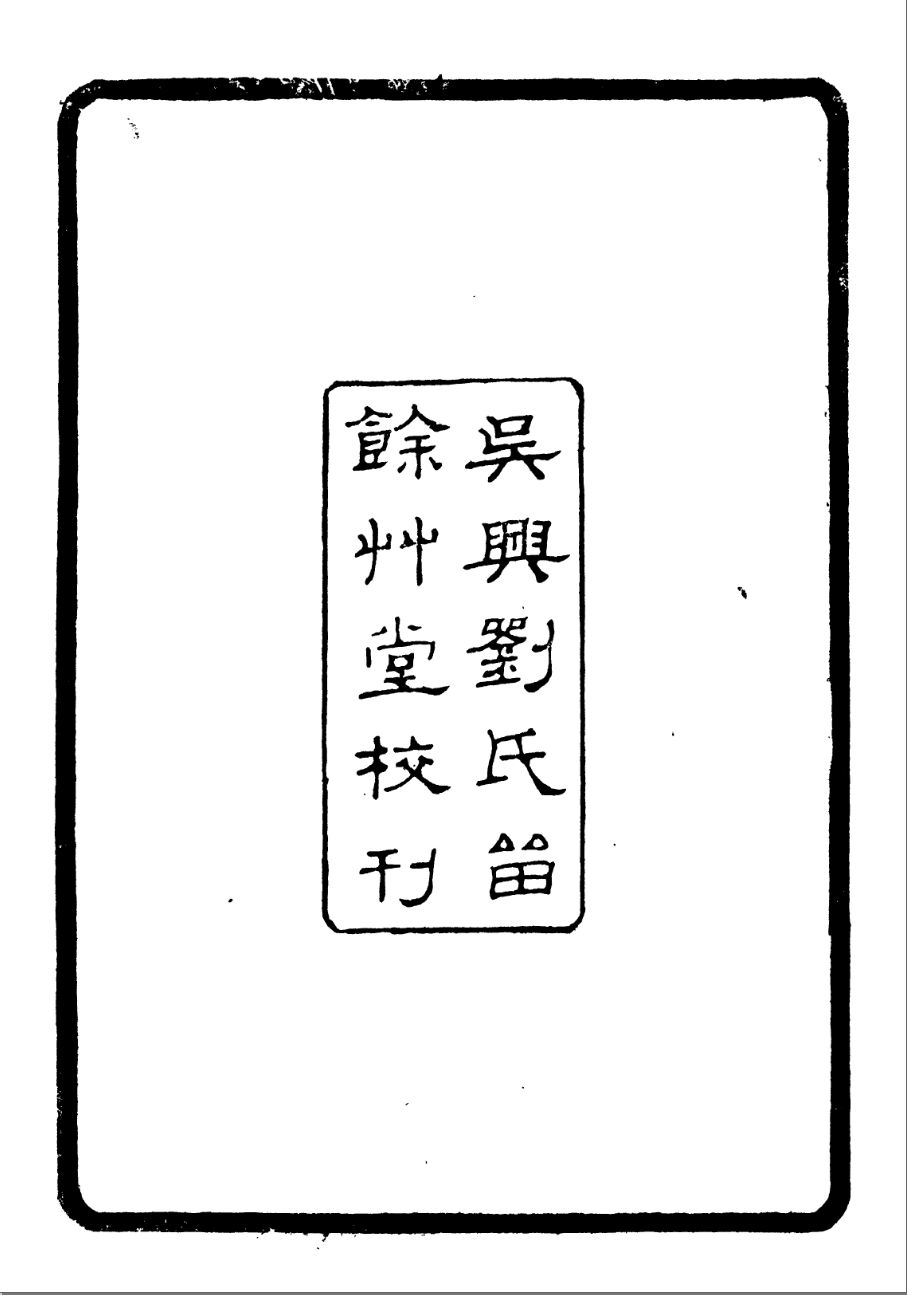 吳興劉氏畱
餘艸堂校刊